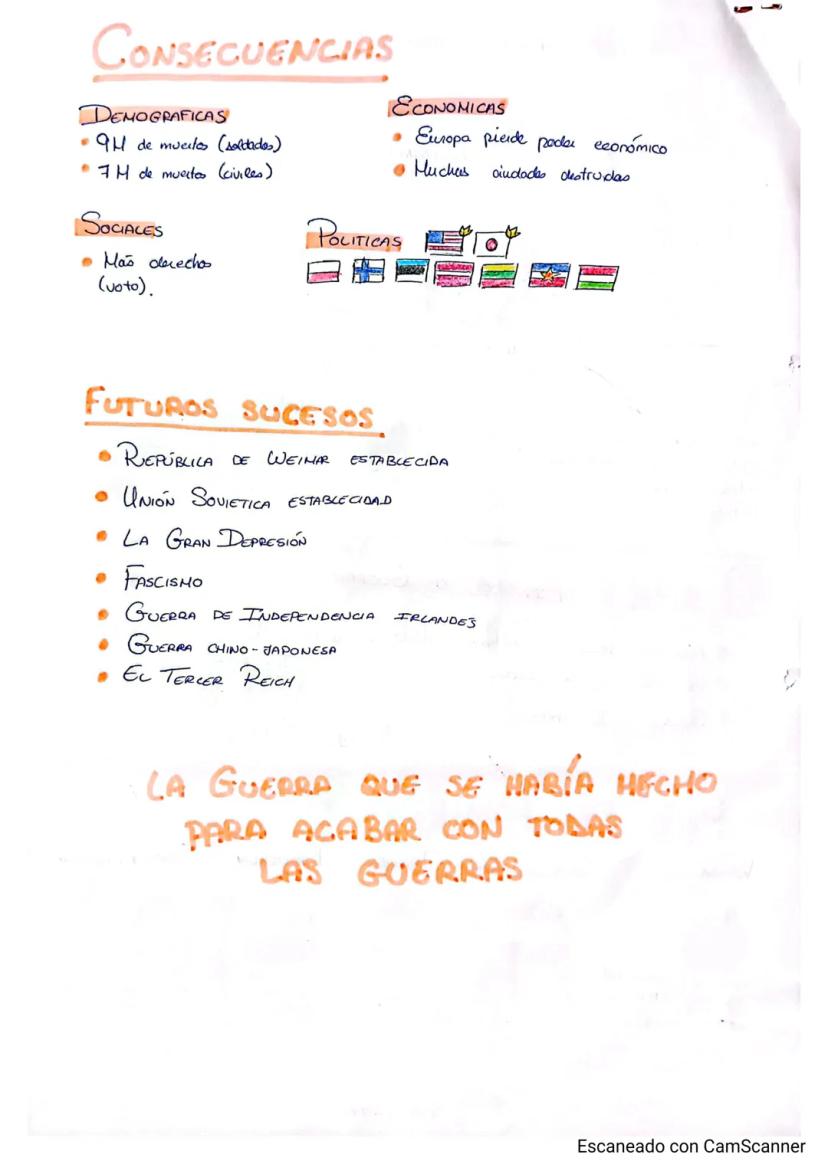 CONSECUENCIAS
DEMOGRAFICAS
• 9M de muertos (soldados)
• 7M de muertos (civiles)
ECONOMICAS
• Europa pierde poder económico
• Muchas ciudades destruidas
SOCIALES
• Más derechos
(voto).
POLITICAS
FUTUROS SUCESOS
• REPÚBLICA DE WEIMAR ESTABLECIDA
• UNIÓN SOVIETICA ESTABLECIDAD
• LA GRAN DEPRESIÓN
• FASCISMO
• GUERRA DE INDEPENDENCIA IRLANDES
• GUERRA CHINO-JAPONESA
• EL TERCER REICH
LA GUERRA QUE SE HABÍA HECHO
PARA ACABAR CON TODAS
LAS GUERRAS
Escaneado con CamScanner